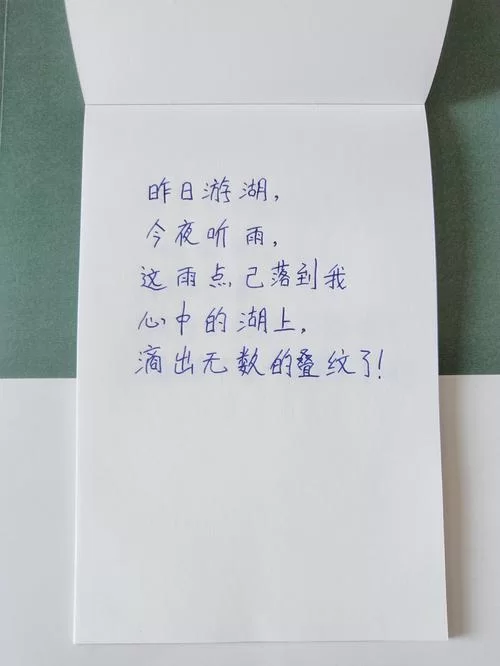 昨日游湖，
今夜听雨，
这雨点已落到我
心中的湖上，
滴出无数的叠纹了！